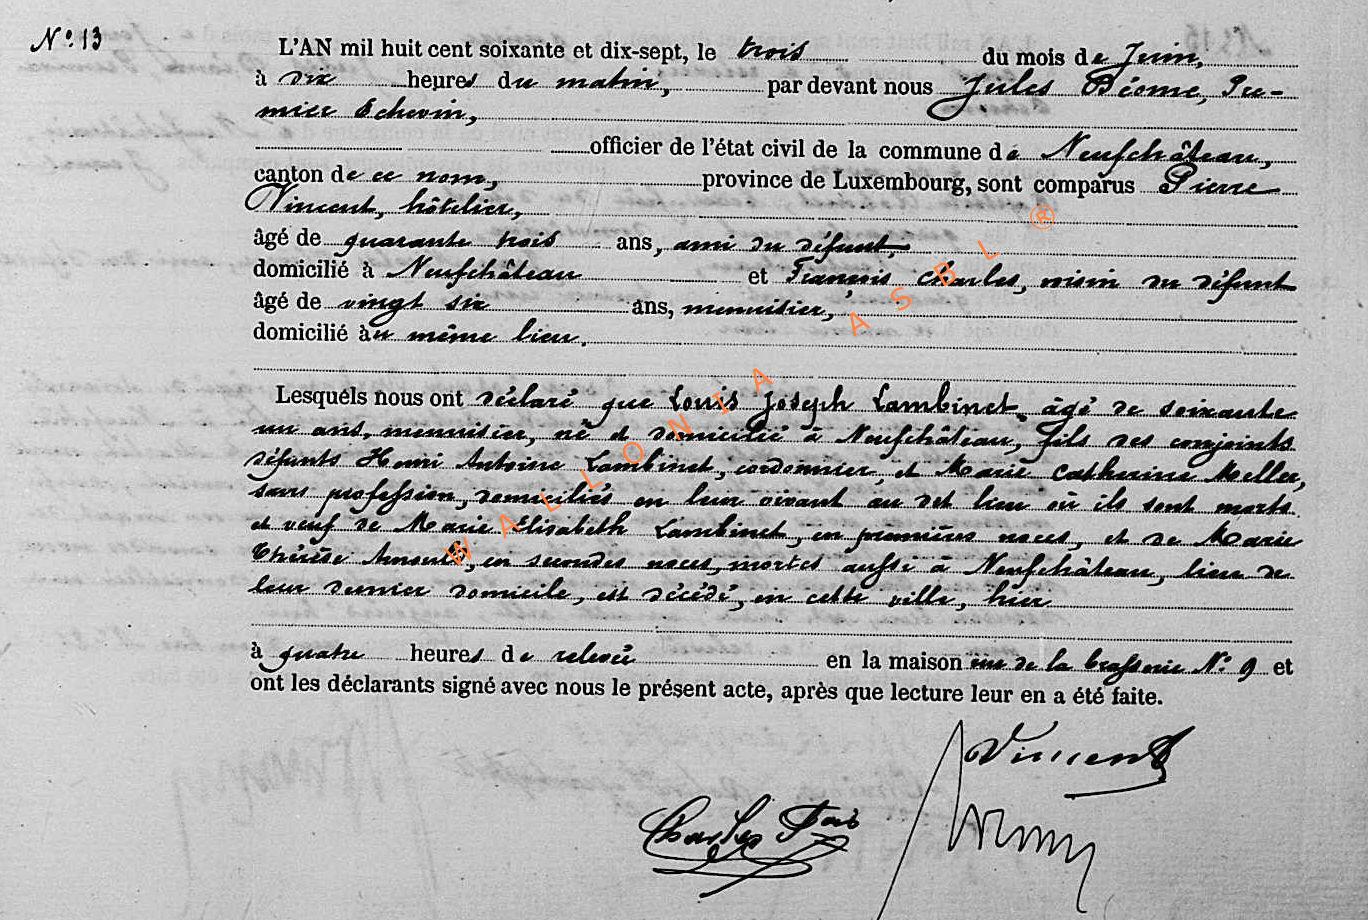 N.° 13
L'AN mil huit cent soixante et dix-sept, le trois du mois de Juin,
à dix heures du matin, par devant nous Jules Diome, Pre-
mier Echevin,
officier de l'état civil de la commune de Neufchâteau,
canton de ce nom, province de Luxembourg, sont comparus Pierre
Vincent, hôtelier,
âgé de quarante trois ans, ami du défunt,
domicilié à Neufchâteau et François Charles, voisin du défunt
âgé de vingt six ans, menuisier,
domicilié au même lieu.
Lesquels nous ont déclaré que Louis Joseph Lambinet, âgé de soixante
un ans, menuisier, né et domicilié à Neufchâteau, fils des conjoints
défunts Henri Antoine Lambinet, cordonnier, et Marie Catherine Meller,
sans profession, domiciliés en leur vivant au dit lieu où ils sont morts.
et veuf de Marie Elisabeth Lambinet, en premières noces, et de Marie
Thérèse Arnould, en secondes noces, mortes aussi à Neufchâteau, lieu de
leur dernier domicile, est décédé, en cette ville, hier
à quatre heures de relevée en la maison rue de la brasserie N.° 9 et
ont les déclarants signé avec nous le présent acte, après que lecture leur en a été faite.
Vincent
Charles Fois
WALLONIA ASBL ®